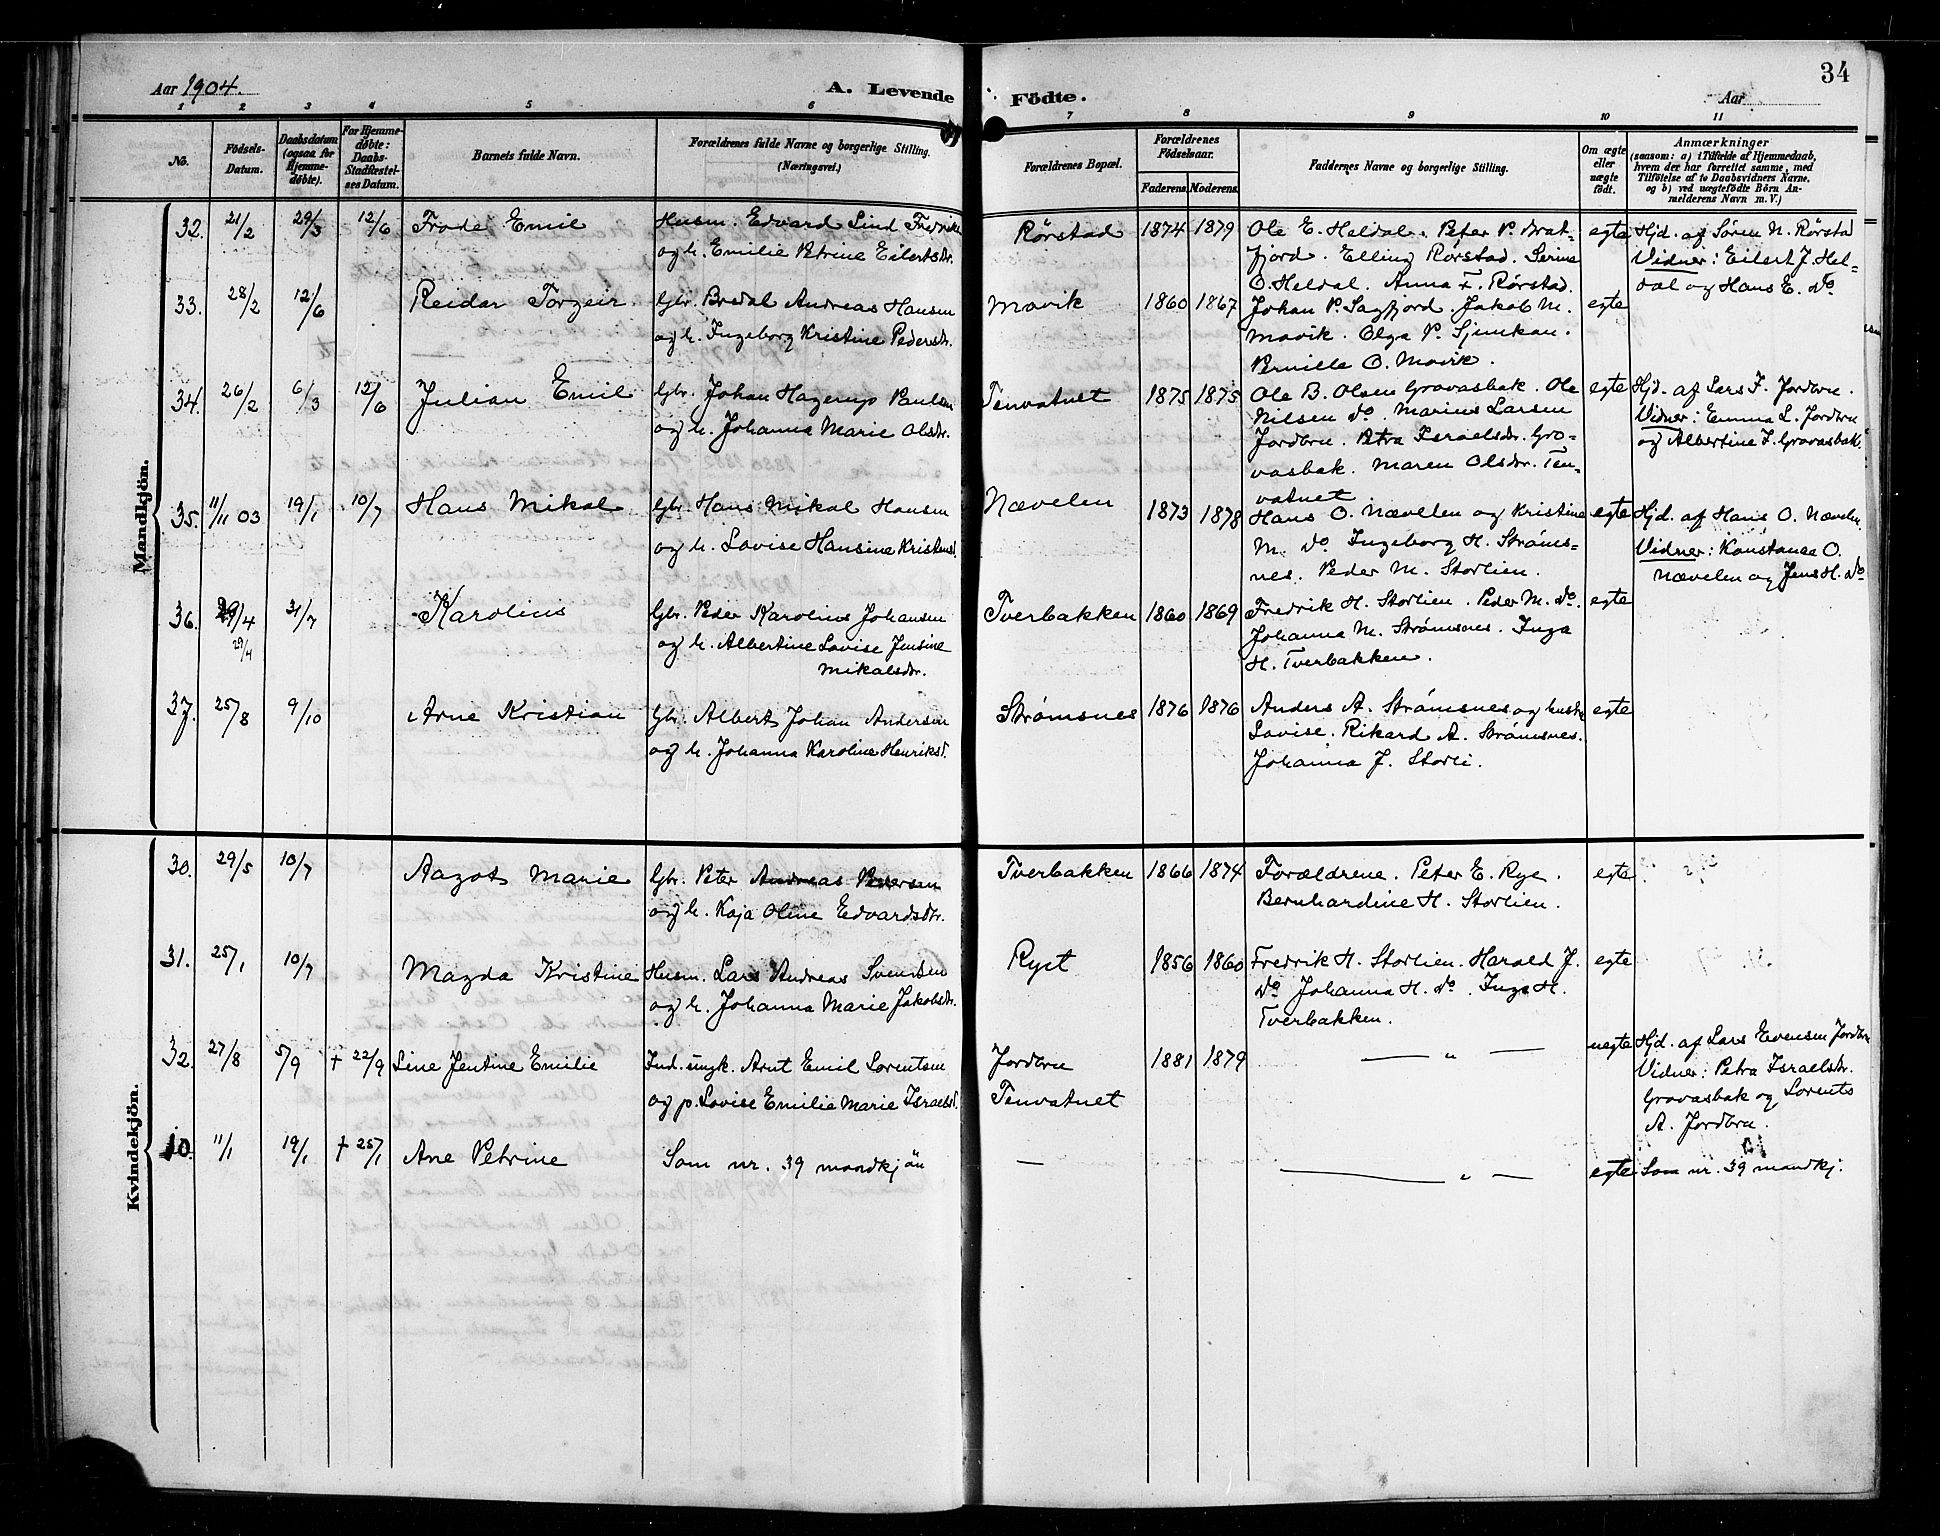 Aar 1904.
A. Levende Födte.
Aar
34
1 2 3 4 5 6 7 8 9 10 11
No.
Födsels-Datum.
Daabsdatum (ogsaa for Hjemme-döbte).
For Hjemme-döbte: Daabs-Stadfæstelses Datum.
Barnets fulde Navn.
Forældrenes fulde Navne og borgerlige Stilling. (Næringsvei.)
Forældrenes Bopæl.
Forældrenes Födselsaar.
Faderens. Moderens.
Faddernes Navne og borgerlige Stilling.
Om ægte eller uægte födt.
Anmærkninger
(saasom: a) i Tilfælde af Hjemmedaab,
hvem der har forrettet samme, med
Tilföielse af to Daabsvidners Navne.
og b) ved uægtefödte Börn An-
melderens Navn m. V.)
Mandkjön.
32. 21/2 29/3 12/6 Frode Emil
Husm. Edvard Lind Fredriks
og h. Emilie Petrine Eilertsdr.
Rørstad 1874 1879
Ole E. Heldal. Peter P. Brat-
fjord. Elling Rørstad. Serina
O. Heldal. Anna F. Rørstad.
egte
Hjd. af Søren N. Rørstad
Vidner: Eilert J. Hel-
dal og Hans E. do
33. 28/2 12/6 Reidar Torgeir
Gbr. Bredal Andreas Hansen
og h. Ingeborg Kristine Pedersdr.
Movik 1860 1867
Johan P. Sagfjord. Jakob M.
Movik. Olga P. Sjunkan.
Pernille O. Movik.
egte
34. 26/2 6/3 12/6 Julian Emil
Gbr. Johan Hagerup Paulsen
og h. Johanna Marie Olsdr.
Tenvatnet 1875 1875
Ole B. Olsen Gravasbak. Ole
Nilsen do Marius Larsen
Jordbru. Petra Israelsdr. Gra-
vasbak. Maren Olsdr. Ten-
vatnet
egte
Hjd. af Lars F. Jordbru.
Vidner: Emma L. Jordbru
og Albertine I. Gravasbak
35. 11/11 03 19/1 10/7 Hans Mikal
Gbr. Hans Mikal Hansen
og h. Lovise Hansine Kristensd.
Nævelen 1873 1878
Hans O. Nævelen og Kristine
M. do Ingeborg H. Strøms-
nes. Peder M. Storlien.
egte
Hjd. af Hans O. Nævelen.
Vidner: Konstanse O.
Nævelen og Jens H. do
36. 29/4 31/7 Karolius
29/4
Gbr. Peder Karolius Johansen
og h. Albertine Lovise Jensine
Mikalsdr.
Tverbakken 1860 1869
Fredrik H. Storlien. Peder M. do.
Johanna M. Strømsnes. Inga
H. Tverbakken.
egte
37. 25/8 9/10 Arne Kristian
Gbr. Albert Johan Andersen
og h. Johanna Karoline Henriksd.
Strømsnes 1876 1876
Anders A. Strømsnes og hustr.
Lovise. Rikard A. Strømsnes.
Johanna J. Storli.
egte
Kvindekjön.
30. 29/5 10/7 Aagot Marie
Gbr. Peter Andreas Pedersen
og h. Kaja Oline Edvardsdr.
Tverbakken 1866 1874
Forældrene. Peter E. Rye.
Bernhardine H. Storlien.
egte
31. 25/1 10/7 Magda Kristine
Husm. Lars Andreas Svendsen
og h. Johanna Marie Jakobsdr.
Ryet 1856 1860
Fredrik H. Storlien. Harald J.
do Johanna H. do. Inga H.
Tverbakken.
egte
32. 27/8 5/9 + 22/9 Line Jentine Emilie
Ind. ungk. Arnt Emil Lorentsen
og p. Lovise Emilie Marie Israelsd.
Jordbru
Tenvatnet
1881 1879
— „ —
uegte
Hjd. af Lars Evensen Jordbru
Vidner: Petra Israelsdr.
Gravasbak og Lorents
A. Jordbru.
10. 11/1 19/1 + 25/1 Ane Petrine
Som nr. 39 mandkjön
—
— „ —
egte
Som nr. 39 mandkj.